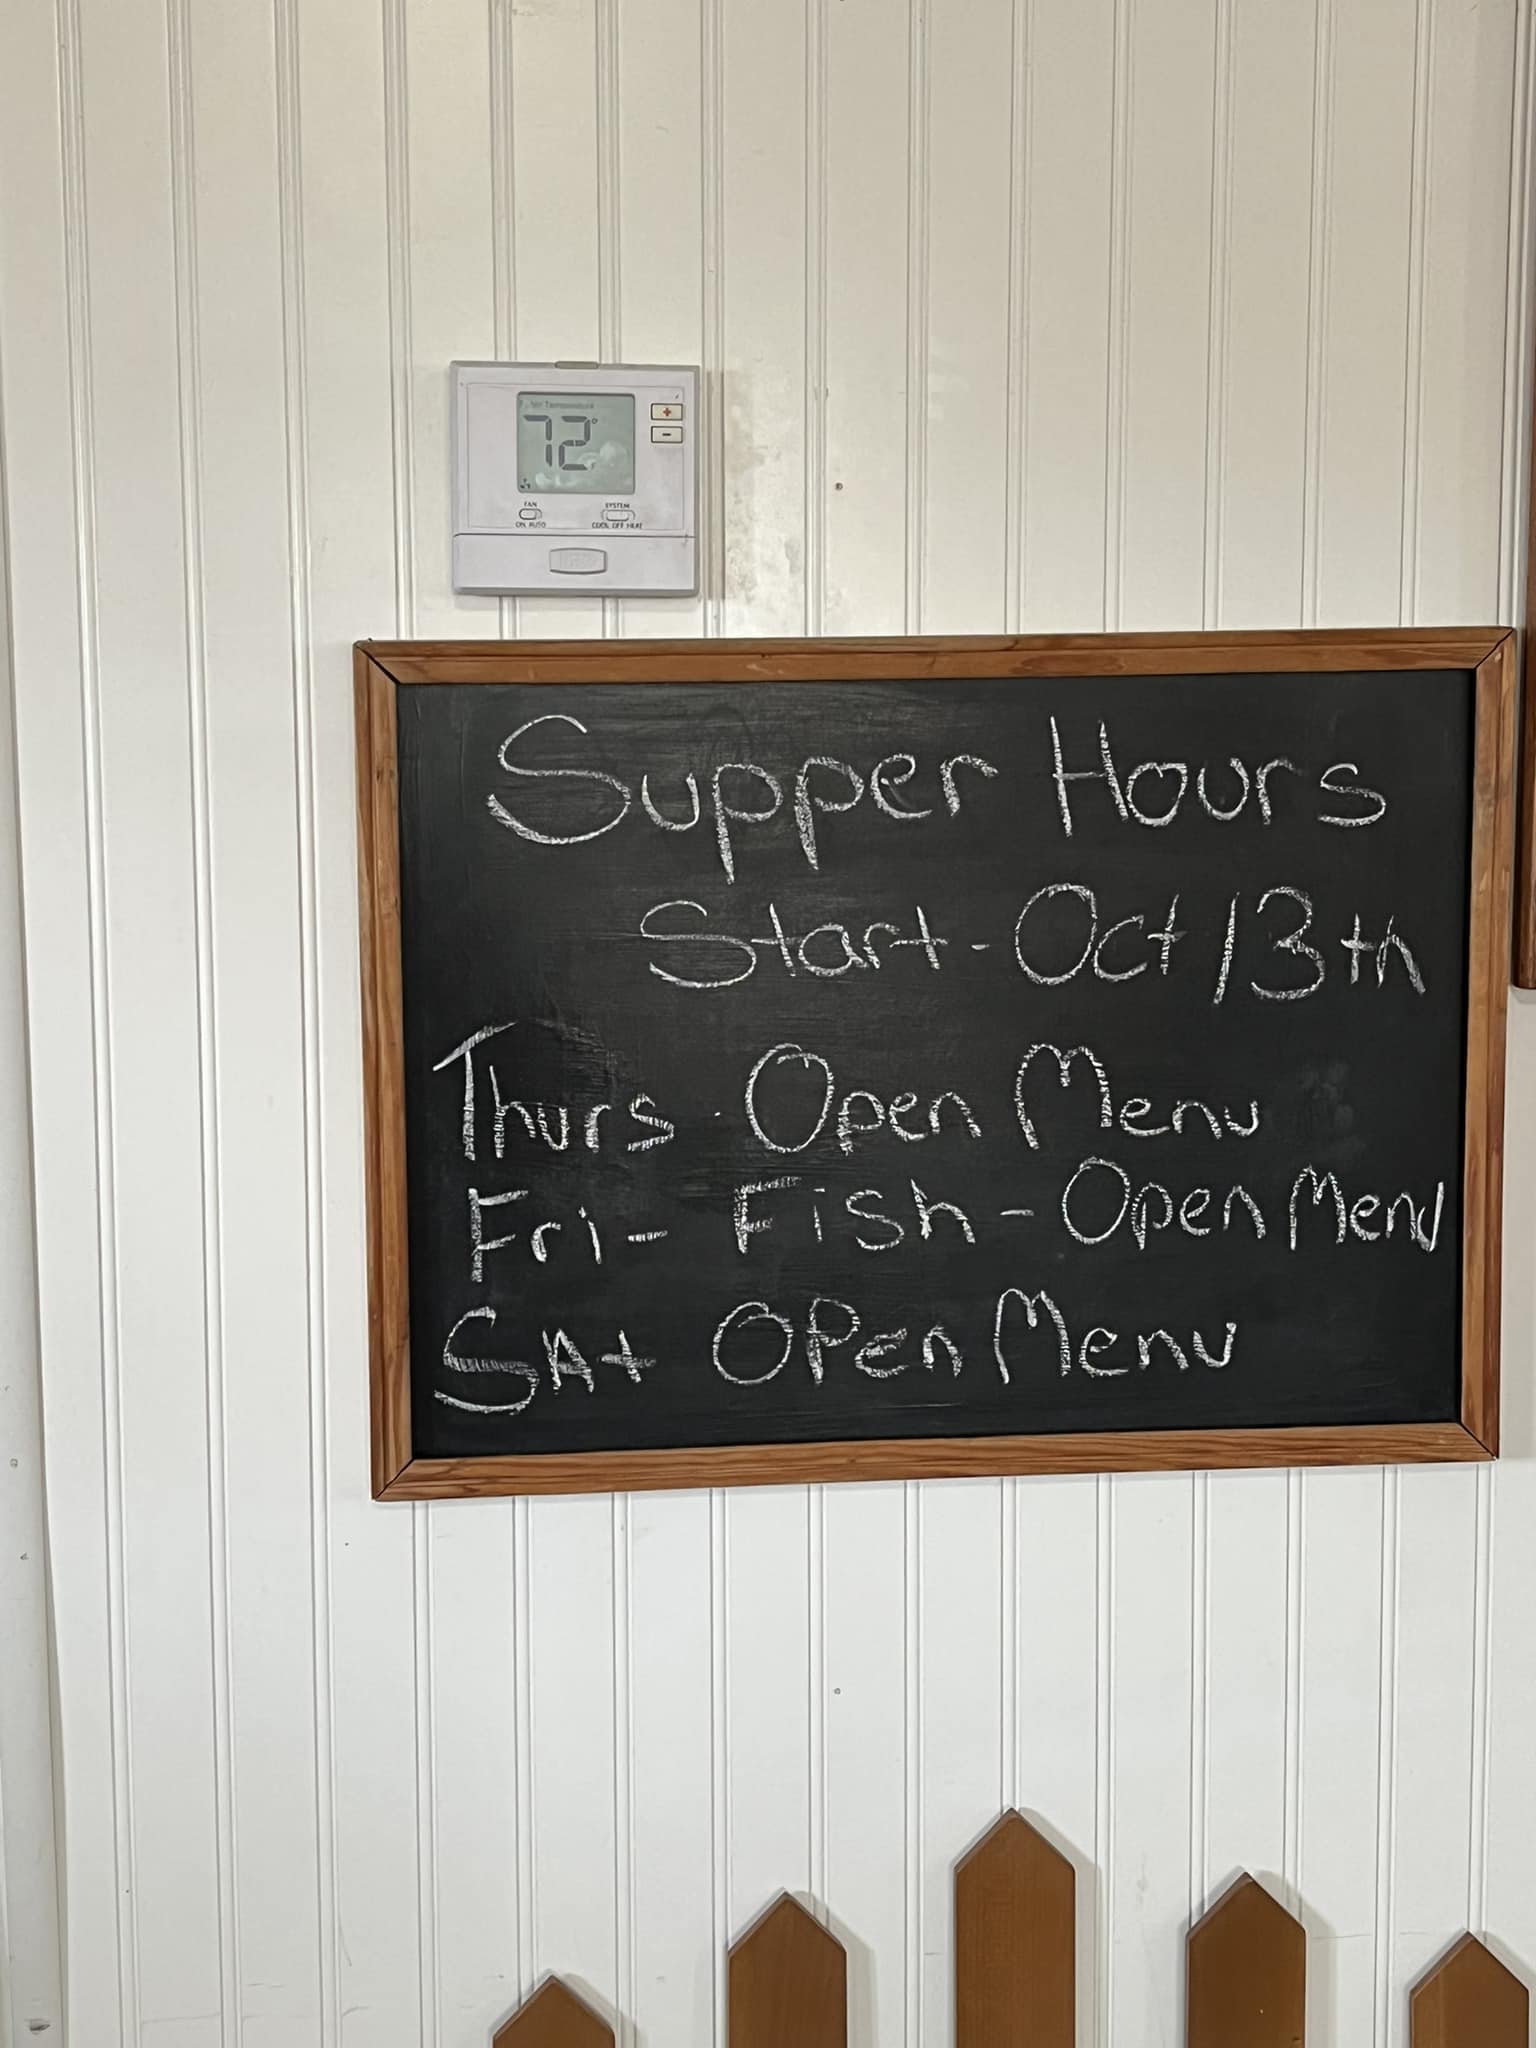 72°
+
-
FAN
ON AUTO
SYSTEM
COOL OFF HEAT
Supper Hours
Start - Oct 13th
Thurs - Open Menu
Fri - Fish - Open Menu
SAt OPen Menu